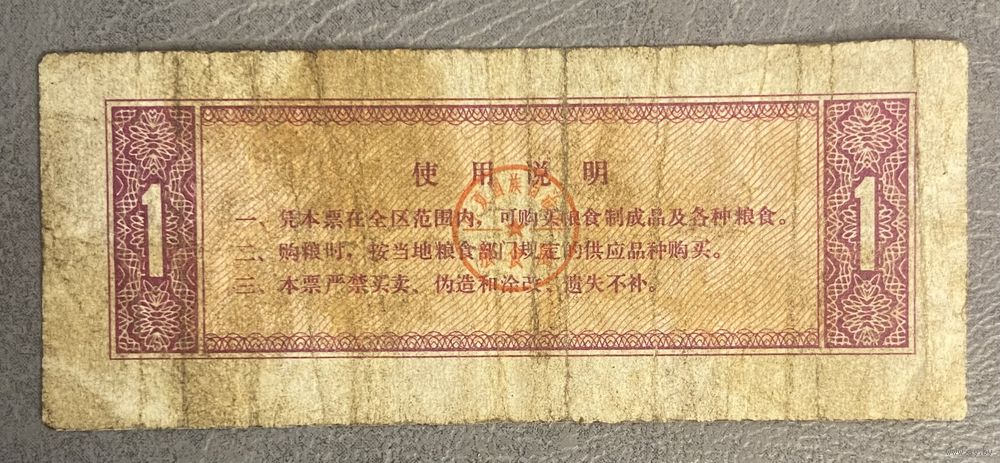 使用说明
一、凭本票在全区范围内，可购买粮食制成品及各种粮食。
二、购粮时，按当地粮食部门规定的供应品种购买。
三、本票严禁买卖、伪造和涂改、遗失不补。
1
1